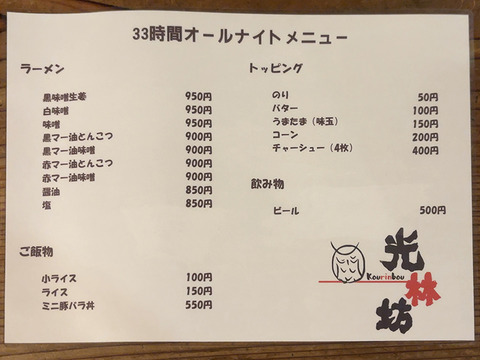 33時間オールナイトメニュー
ラーメン
黒味噌生姜 950円
白味噌 950円
味噌 950円
黒マー油とんこつ 900円
黒マー油味噌 900円
赤マー油とんこつ 900円
赤マー油味噌 900円
醤油 850円
塩 850円
ご飯物
小ライス 100円
ライス 150円
ミニ豚バラ丼 550円
トッピング
のり 50円
バター 100円
うまたま（味玉） 150円
コーン 200円
チャーシュー（4枚） 400円
飲み物
ビール 500円
Kourinbou
光林坊